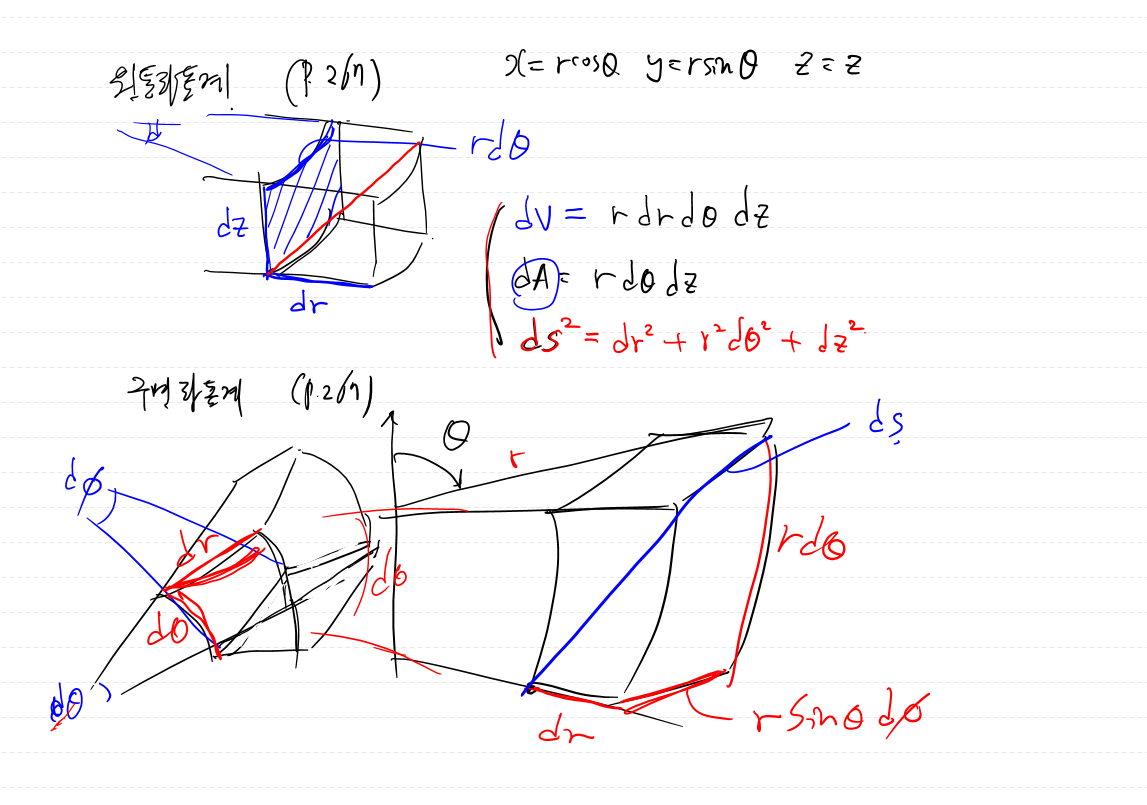 원통좌표계 (P. 261) x = rcosθ y = rsinθ z = z
rdθ
dz
dr
dV = r dr dθ dz
dA = r dθ dz
ds² = dr² + r²dθ² + dz²
구면좌표계 (P. 261)
θ
r
ds
dϕ
dr
dθ
dθ
rdθ
dθ
dr
r sinθ dϕ